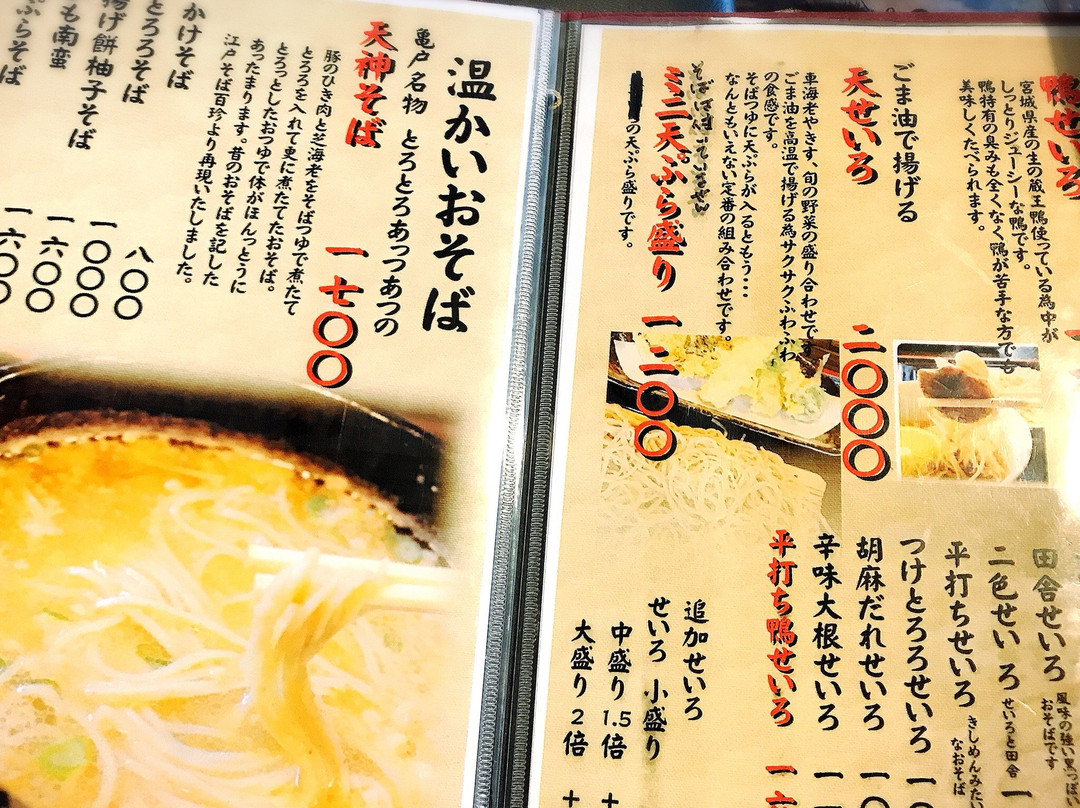 鴨せいろ
宮城県産の主の蔵王鴨使っている為中が
しっとりジューシーな鴨です。
鴨特有の臭みも全くなく鴨が苦手な方でも
美味しくたべられます。
ごま油で揚げる
天せいろ
二〇〇〇
車海老やきす、旬の野菜の盛り合わせです
ごま油を高温で揚げる為サクサクふわふわ
の食感です。
そばつゆに天ぷらが入るともう・・・
なんともいえない定番の組み合わせです。
ミニ天ぷら盛り
一二〇〇
の天ぷら盛りです。
田舎せいろ
風味の強い黒っぽい
おそばです
二色せいろ
せいろと田舎
一
平打ちせいろ
きしめんみたい
なおそば
つけとろろせいろ
胡麻だれせいろ
辛味大根せいろ
平打ち鴨せいろ
追加せいろ
せいろ 小盛り
中盛り 1.5倍
大盛り 2倍
温かいおそば
亀戸名物 とろとろあっつあつの
天神そば
一七〇〇
豚のひき肉と芝海老をそばつゆで煮たて
とろろを入れて更に煮たてたおそば。
とろっとしたおつゆで体がほんっとうに
あったまります。昔のおそばを記した
江戸そば百珍より再現いたしました。
かけそば
八〇〇
とろろそば
一〇〇〇
揚げ餅柚子そば
一六〇〇
も南蛮
一六〇〇
ぷらそば